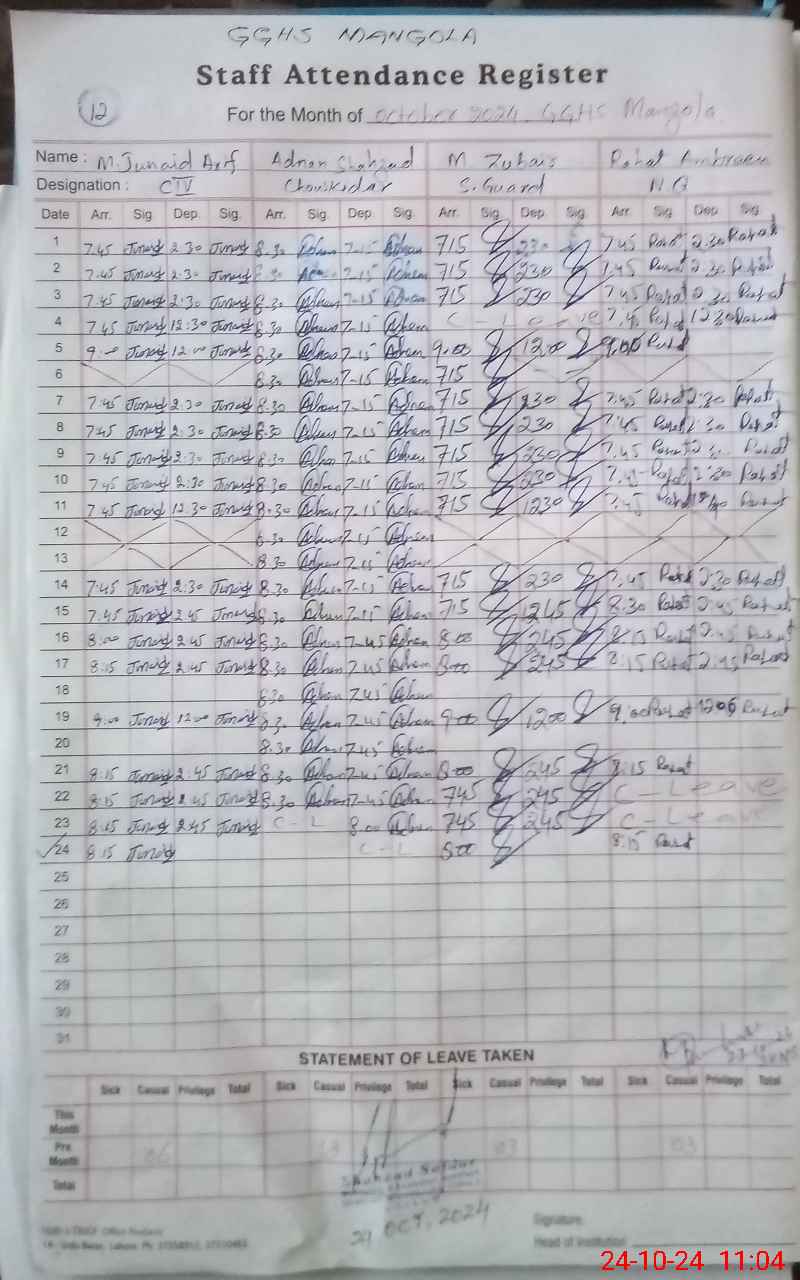 GGHS MANGOLA
Staff Attendance Register
12
For the Month of October 2024 GGHS Mangola
Name : M. Junaid Arif Adnan Shahzad M. Zubair Rahat
Designation : CIV Chowkidar S. Guard N.Q
Date Arr. Sig. Dep. Sig. Arr. Sig. Dep. Sig. Arr. Sig. Dep. Sig. Arr. Sig. Dep. Sig.
1 7.45 Junaid 2:30 Junaid 8.30 Adnan 7-15 Adnan 715 230 7.45 Rahat 2:30 Rahat
2 7.45 Junaid 2:30 Junaid 8.30 Adnan 7-15 Adnan 715 230 7.45 Rahat 2:30 Rahat
3 7.45 Junaid 2:30 Junaid 8.30 Adnan 7-15 Adnan 715 230 7.45 Rahat 2:30 Rahat
4 7.45 Junaid 12:30 Junaid 8.30 Adnan 7-15 Adnan C - Leave 7.45 Rahat 12:30 Rahat
5 9:00 Junaid 12:00 Junaid 8.30 Adnan 7-15 Adnan 9.00 1200 9.00 Rahat
6 8.30 Adnan 7-15 Adnan 715
7 7:45 Junaid 2:30 Junaid 8.30 Adnan 7-15 Adnan 715 230 7.45 Rahat 2:30 Rahat
8 7.45 Junaid 2:30 Junaid 8.30 Adnan 7-15 Adnan 715 230 7.45 Rahat 2:30 Rahat
9 7.45 Junaid 2:30 Junaid 8.30 Adnan 7-15 Adnan 715 230 7.45 Rahat 2: Rahat
10 7.45 Junaid 2:30 Junaid 8.30 Adnan 7-15 Adnan 715 230 7.45 Rahat 2:30 Rahat
11 7.45 Junaid 12.30 Junaid 8.30 Adnan 7-15 Adnan 715 1230 7.45 Rahat Rahat
12 8.30 Adnan 7-15 Adnan
13 8.30 Adnan 7-15 Adnan
14 7:45 Junaid 2:30 Junaid 8.30 Adnan 7-15 Adnan 715 230 7.45 Rahat 2:30 Rahat
15 7.45 Junaid 2.45 Junaid 8.30 Adnan 7-15 Adnan 715 1245 8:30 Rahat 2:45 Rahat
16 8:00 Junaid 2:45 Junaid 8.30 Adnan 7-45 Adnan 8.00 245 8:15 Rahat 2:45 Rahat
17 8:15 Junaid 2:45 Junaid 8.30 Adnan 7.45 Adnan 8.00 245 8:15 Rahat 2:45 Rahat
18 8.30 Adnan 7.45 Adnan
19 9:00 Junaid 12:00 Junaid 8.30 Adnan 7.45 Adnan 9.00 1200 9:00 Rahat 1200 Rahat
20 8.30 Adnan 7.45 Adnan
21 8:15 Junaid 2:45 Junaid 8.30 Adnan 7.45 Adnan 8.00 245 8.15 Rahat
22 8:15 Junaid 2:45 Junaid 8.30 Adnan 7-45 Adnan 745 245 C - Leave
23 8:15 Junaid 2:45 Junaid C - L 8.00 Adnan 745 245 C - Leave
24 8:15 Junaid C - L 8.00 8:15 Rahat
25
26
27
28
29
30
31
STATEMENT OF LEAVE TAKEN
Sick Casual Privilege Total Sick Casual Privilege Total Sick Casual Privilege Total Sick Casual Privilege Total
This Month
Pre Month 06 13 03 03
Total
24 OCT, 2024
Signature
Head of Institution
24-10-24 11:04